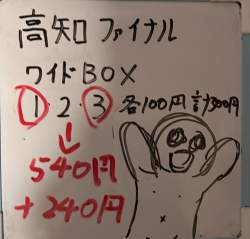 高知ファイナル
ワイドBOX
1・2・3 各100円 計300円
↓
540円
+240円